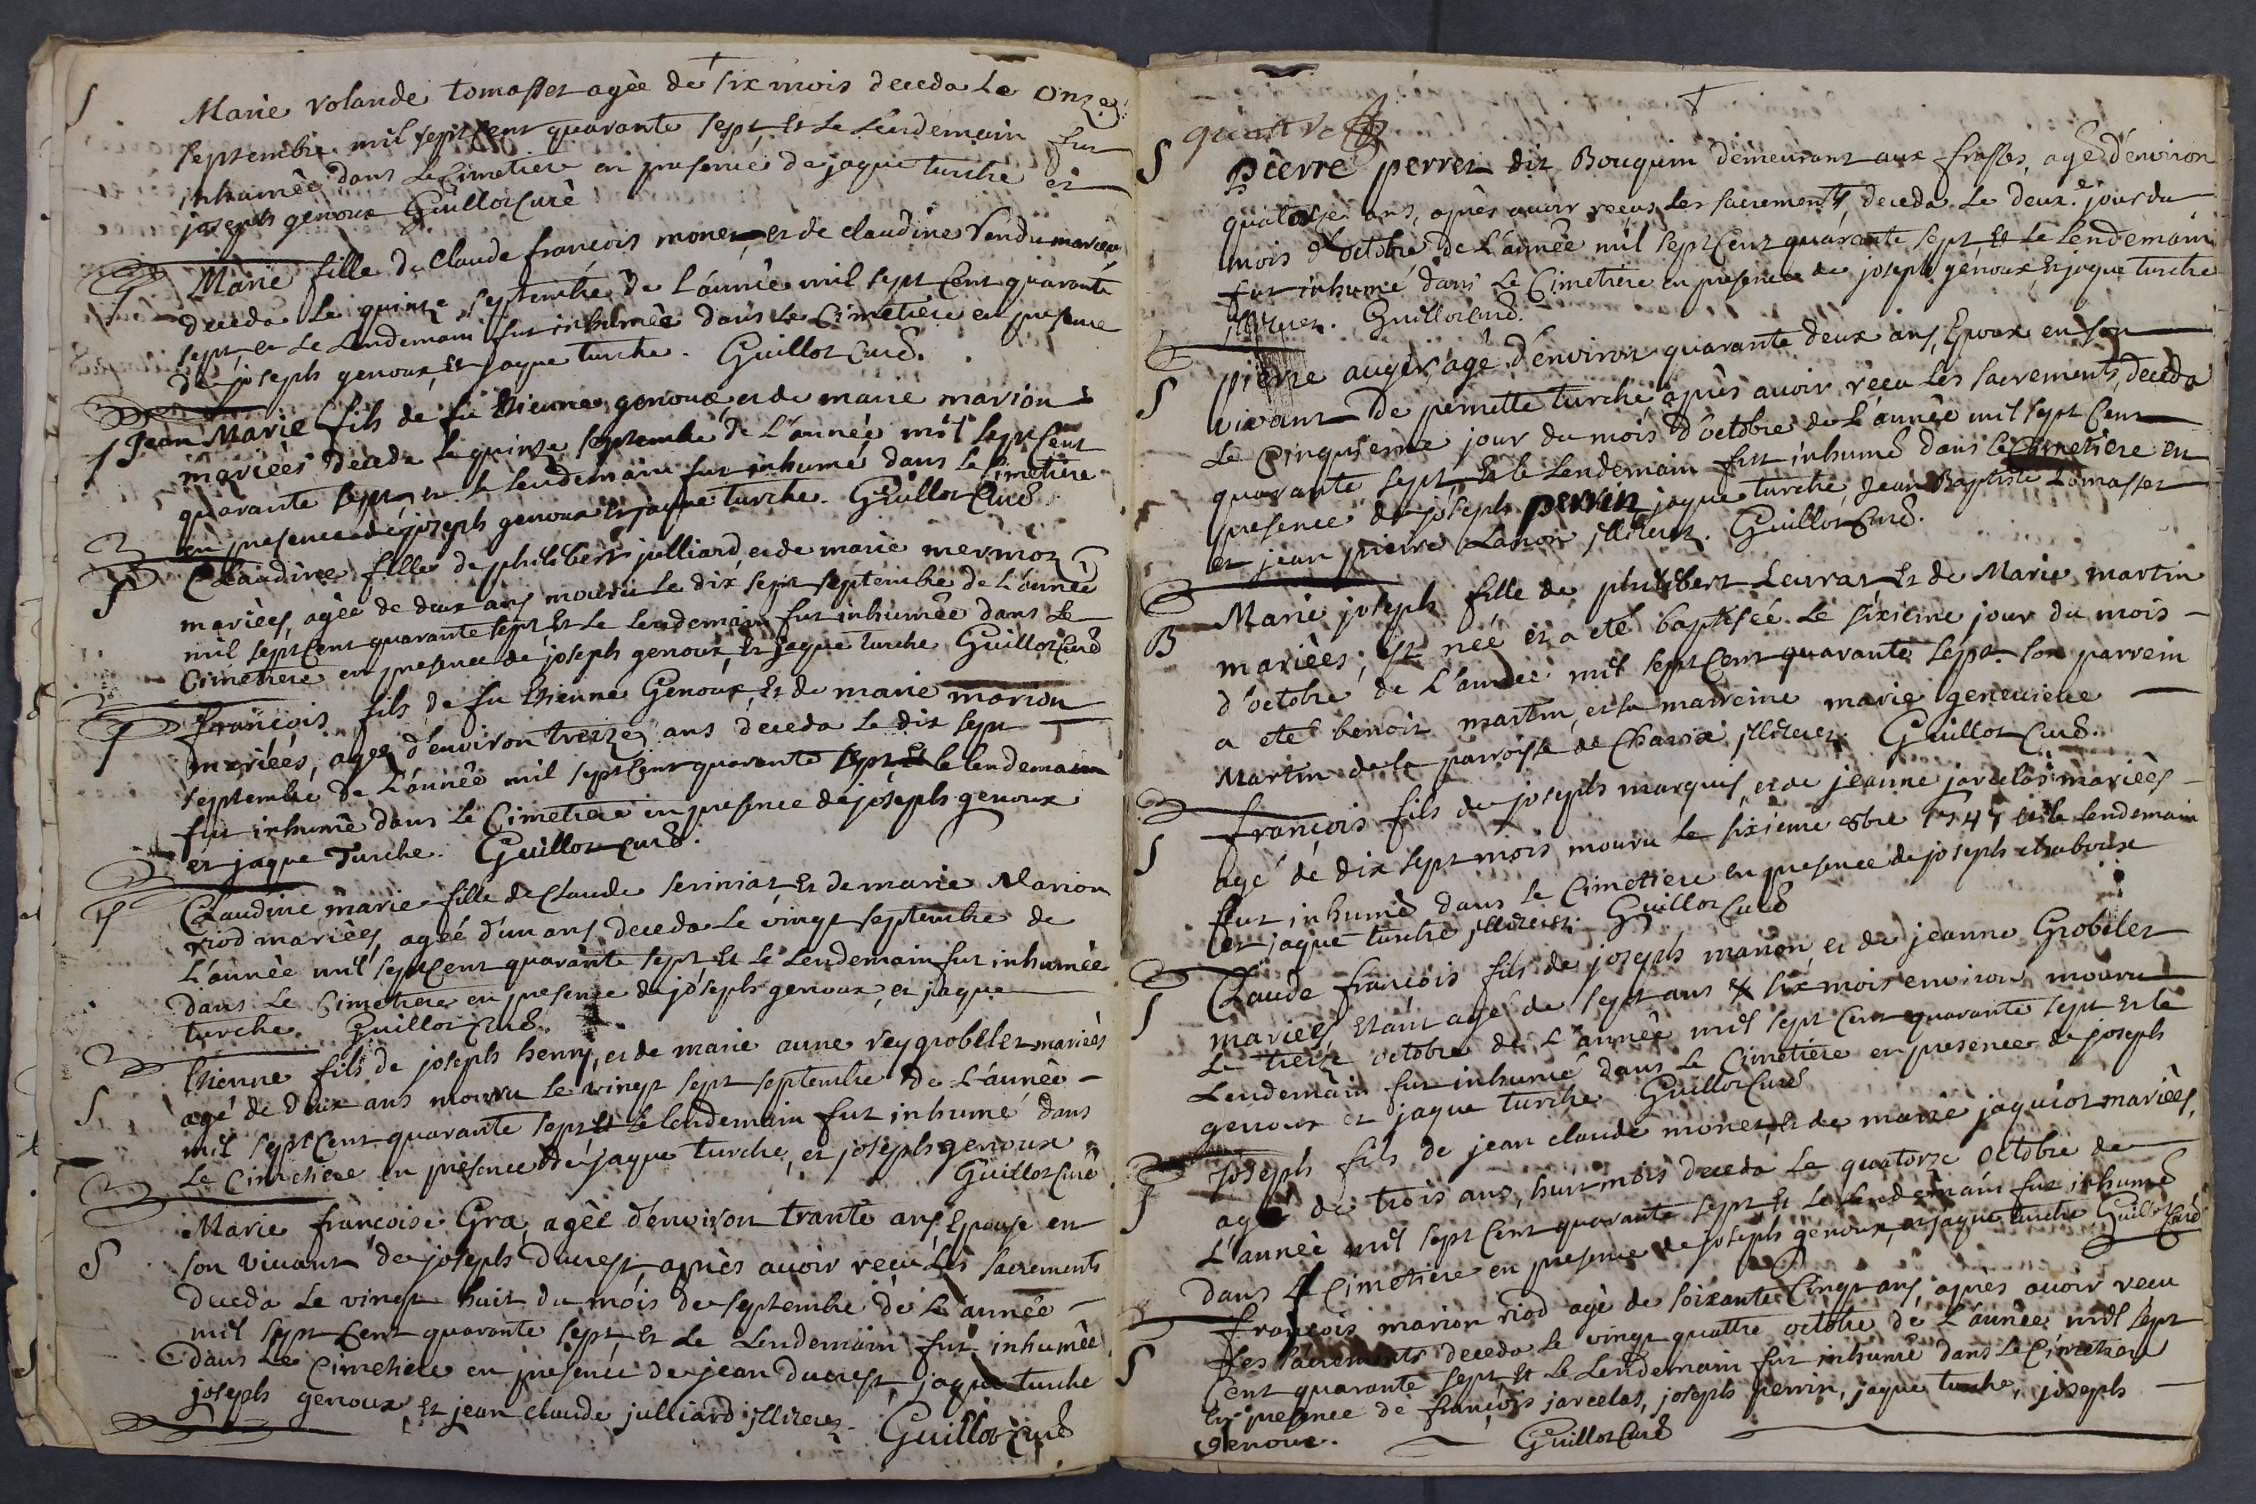 Marie rolande tomasset agèe de six mois deceda Le onze
septembre mil sept Cent quarante sept, Et Le Lendemain fut
inhumêe dans Le Cimetiere en presence de jaque turche et
joseph genoux Guillot Curè
Marie fille de Claude francois monet, et de claudine
deceda Le quinze septembre de L'année mil sept Cent quarante
sept, et Le Lendemain fut inhumèe dans Le Cimetiere en presence
de joseph genoux, Et jaque turche. Guillot Curé.
Jean Marie fils de fu Etienne genoux et de marie marion
mariées deceda Le quinze septembre de L'année mil sept Cent
quarante sept, et Le Lendemain fut inhumé dans Le Cimetiere
en presence de joseph genoux Et jaque turche. Guillot Curé
Claudine fille de philibert julliard et de marie mermoz
mariées, agèe de deux ans mouru Le dix sept septembre de L'année
mil sept Cent quarante sept, Et Le Lendemain fut inhumêe dans Le
Cimetiere en presence de joseph genoux, Et jaque turche Guillot Curé
francois fils de fu Etienne Genoux, Et de marie marion
mariées, agée d'environ treize ans deceda Le dix sept
septembre de L'année mil sept Cent quarante sept, Et le Lendemain
fut inhumé dans Le Cimetiere en presence de joseph genoux
et jaque Turche. Guillot curé.
Claudine marie fille de Claude seriniat Et de marie Marion
riod mariées, ageé d'un ans deceda Le vingt septembre de
L'année mil sept Cent quarante sept, Et Le Lendemain fut inhumée
dans Le Cimetiere en presence de joseph genoux, et jaque
turche. Guillot Curé.
Etienne fils de joseph henry, et de marie anne rey grobelet mariées
agé de deux ans mouru Le vingt sept septembre de L'année
mil sept Cent quarante sept Et Le Lendemain fut inhumé dans
Le Cimetiere en presence de jaque turche, et joseph genoux
Guillot Curé
Marie francoise Gra, agèe d'environ trante ans, Epouse en
son vivant de joseph Ducrest, après avoir recu Les sacrements
deceda Le vingt huit du mois de septembre de L'année
mil sept Cent quarante sept, Et Le Lendemain fut inhumée
dans Le Cimetiere en presence de jean ducrest, jaque turche
joseph genoux, Et jean claude julliard illiterez Guillot Curé
quattre
S pierre perret dit Bouquin demeurant aux frasses, agé d'environ
quatorze ans, après avoir reçus Les sacrements, deceda Le deux.e jour du
mois d'octobre de L'année mil sept Cent quarante sept Et Le Lendemain
fut inhumé dans Le Cimetiere en presence de joseph genoux Et jaque turche
illiterez. Guillot Curé.
S pierre auger agé d'environ quarante deux ans, Epoux en son
vivant de pernette turche après avoir reçu Les sacrements, deceda
Le Cinquieme jour du mois d'octobre de L'année mil sept Cent
quarante sept, Et Le Lendemain fut inhumé dans Le Cimetiere en
presence de joseph perrin jaque turche Jean Baptiste tomasset
et jean pierre illiterez. Guillot Curé.
B Marie joseph fille de philibert Leurat Et de Marie martin
mariées, Et née et a eté baptisée Le sixieme jour du mois
d'octobre de L'année mil sept Cent quarante sept. son parrein
a eté benoit martin, et sa marreine marie genevieve
Martin de la parroisse de illiterez. Guillot Curé.
S françois fils de joseph marquis, et de jeanne jarcelas mariées
agé de dix sept mois mouru Le sixieme 8bre 1747 et Le Lendemain
fut inhumé dans Le Cimetiere en presence de joseph
et jaque turche illiterez. Guillot Curé
S Claude francois fils de joseph marion, et de jeanne Grobelet
mariées, Etant agé de sept ans six mois environ mouru
Le treize octobre de L'année mil sept Cent quarante sept Et Le
Lendemain fut inhumé dans Le Cimetiere en presence de joseph
genoux et jaque turche Guillot Curé
S Joseph fils de jean claude monet, Et de marie jaquiot mariées,
agé de trois ans, huit mois deceda Le quatorze octobre de
L'année mil sept Cent quarante sept Et Le Lendemain fut inhumé
dans Le Cimetiere en presence de joseph genoux, et jaque turche Guillot Curé
S françois marion riod agé de soixante Cinqt ans, après avoir recu
Les sacrements deceda Le vingt quattre octobre de L'année mil sept
Cent quarante sept, Et Le Lendemain fut inhumé dans Le Cimetiere
en presence de françois jarcelas, joseph perrin, jaque turche, joseph
genoux. Guillot Curé